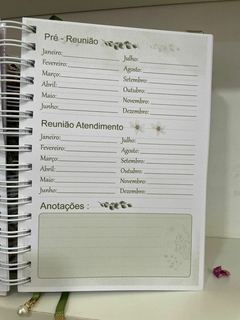 Pré - Reunião
Janeiro: Julho:
Fevereiro: Agosto:
Março: Setembro:
Abril: Outubro:
Maio: Novembro:
Junho: Dezembro:
Reunião Atendimento
Janeiro: Julho:
Fevereiro: Agosto:
Março: Setembro:
Abril: Outubro:
Maio: Novembro:
Junho: Dezembro:
Anotações :